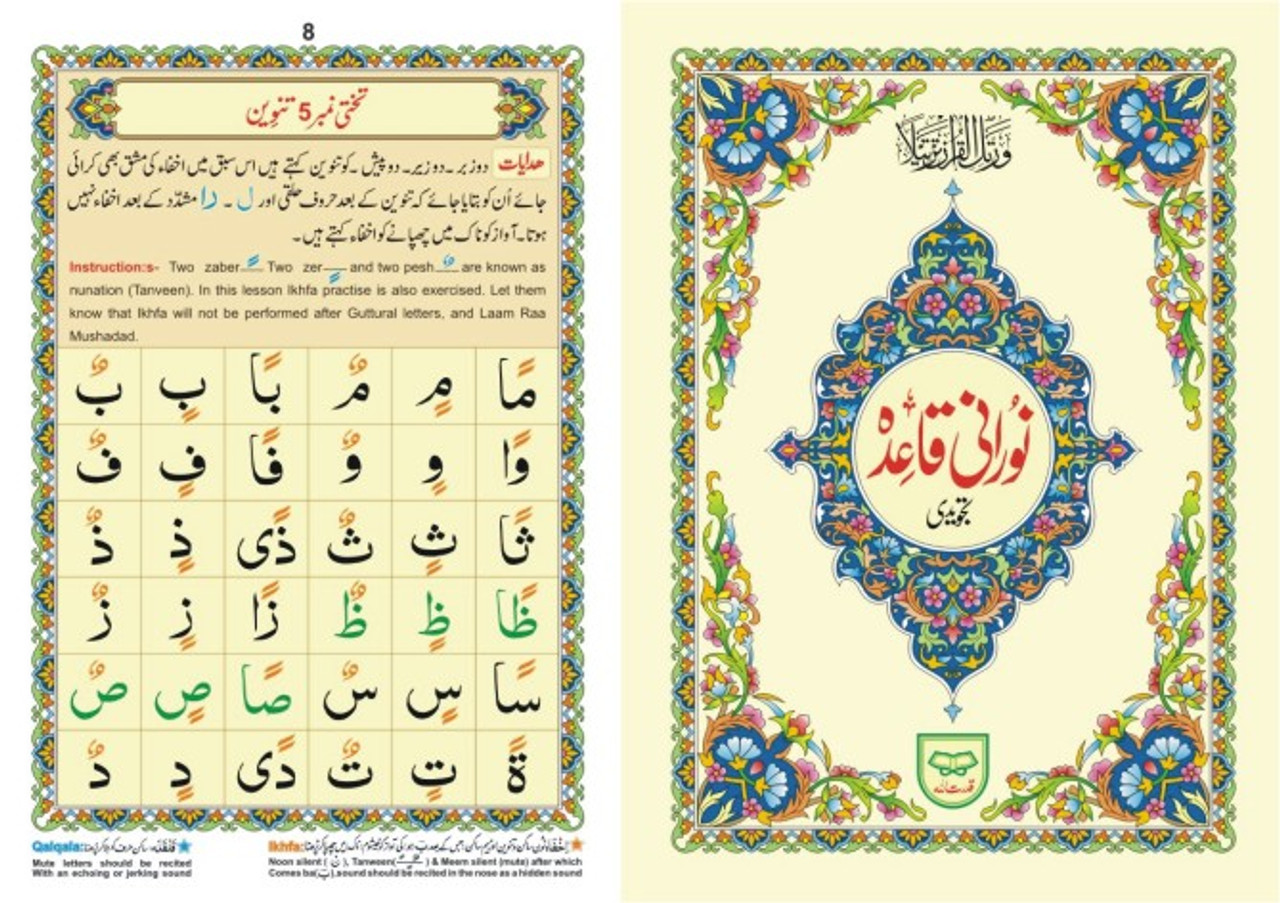 8
تختی نمبر 5 تنوین
ھدایات دو زبر۔ دو زیر۔ دو پیش۔ کو تنوین کہتے ہیں اس سبق میں اخفاء کی مشق بھی کرائی
جائے اُن کو بتایا جائے کہ تنوین کے بعد حروف حلقی اور ل ۔ را مشدّد کے بعد اخفاء نہیں
ہوتا۔ آواز کو ناک میں چھپانے کو اخفاء کہتے ہیں۔
Instruction:s- Two zaber ً Two zer ٍ and two pesh ٌ are known as
nunation (Tanveen). In this lesson Ikhfa practise is also exercised. Let them
know that Ikhfa will not be performed after Guttural letters, and Laam Raa
Mushadad.
مًا مٍ مٌ بًا بٍ بٌ
وًا وٍ وٌ فًا فٍ فٌ
ثًا ثٍ ثٌ ذًى ذٍ ذٌ
ظًا ظٍ ظٌ زًا زٍ زٌ
سًا سٍ سٌ صًا صٍ صٌ
ةً تٍ تٌ دًى دٍ دٌ
Qalqala:
Mute letters should be recited
With an echoing or jerking sound
Ikhfa:
Noon silent ( نْ ), Tanween( ًٌٍ ) & Meem silent (mute) after which
Comes ba(بَ).sound should be recited in the nose as a hidden sound
وَرَتِّلِ الْقُرْآنَ تَرْتِيلًا
نُورانی قاعِدہ
تجویدی
قدرت اللہ